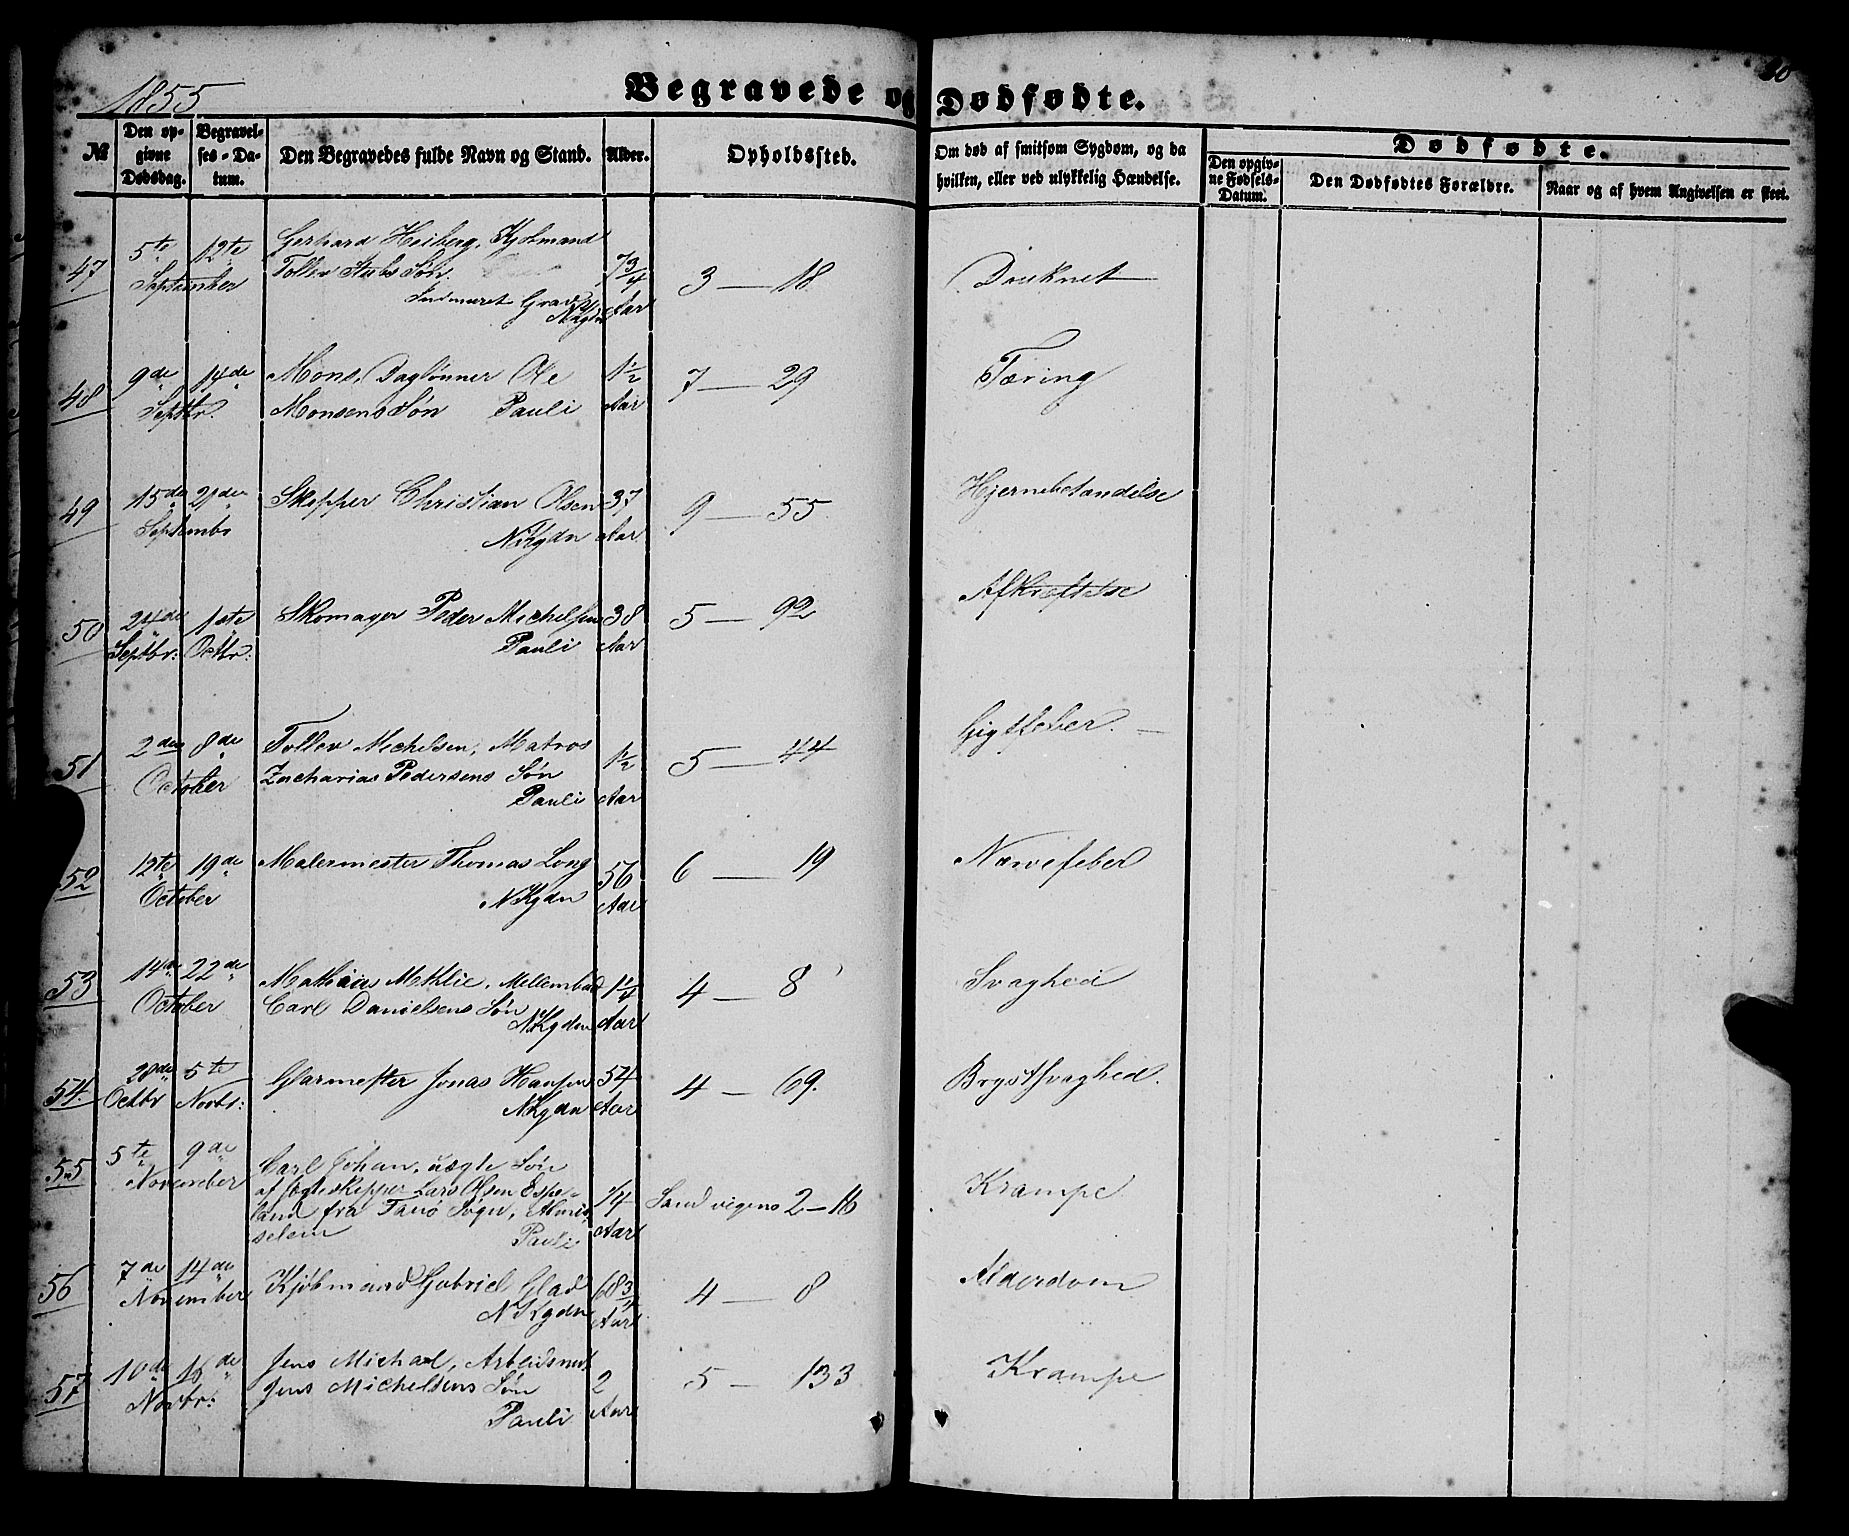 1855
Begravede og Dødfødte.
№
Den op-
givne
Dødsdag.
Begravel-
ses-Da-
tum.
Den Begravedes fulde Navn og Stand.
Alder.
Opholdssted.
Om død af smitsom Sygdom, og da
hvilken, eller ved ulykkelig Hændelse.
Dødfødte.
Den opgiv-
ne Fødsels-
Datum.
Den Dødfødtes Forældre.
Naar og af hvem Angivelsen er skeet.
47
5te 12te
September
Gerhard Heiberg, Kjøbmand
Tollev Søn
Indmuret Grav
NKgdn
7 3/4
Aar
3 — 18
Druknet
48
9de 14de
Septbr.
Mons, Daglønner Ole
Monsens Søn Pauli
1 1/2
Aar
7 — 29
Tæring
49
15de 21de
Septembr
Skipper Christian Olsen
NKgdn
37
Aar
9 — 55
Hjernebetændelse
50
24de 1ste
Septbr: Octbr:
Skomager Peder Michelsen
Pauli
38
Aar
5 — 92
Afkræftelse
51
2den 8de
October
Tollev Michelsen, Matros
Zacharias Pedersens Søn
Pauli
1 1/2
Aar
5 — 44
Gigtfeber.
52
12te 19de
October
Malermester Thomas Long
NKgdn
56
Aar
6 — 19
Nervefeber
53
14de 22de
October
Mathias Methlie, Mellembud
Carl Danielsens Søn
NKgdn
1 1/4
Aar
4 — 8
Svaghed
54
28de 5te
Octbr Novbr:
Glarmester Jonas Hansen
NKgdn
54
Aar
4 — 69.
Brystsvaghed.
55
5te 9de
November
Carl Johan, uægte Søn
af Jagteskipper Lars Olsen Espe-
land fra Fanø Sogn,
Pauli
1/4
Aar
Sandvigens 2 — 16
Krampe
56
7de 14de
November
Kjøbmand Gabriel Glad
NKgdn
68 3/4
Aar
4 — 8
Alderdom
57
10de 16de
Novbr:
Jens Michael, Arbeidsmd
Jens Michelsens Søn
Pauli
2
Aar
5 — 133
Krampe